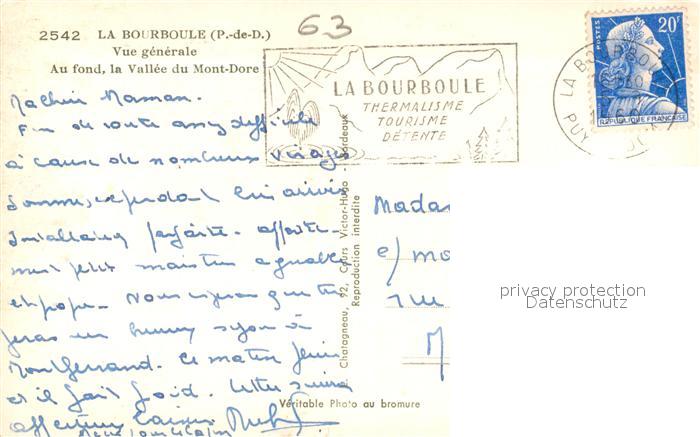 63
2542 LA BOURBOULE (P.-de-D.)
Vue générale
Au fond, la Vallée du Mont-Dore
LA BOURBOULE
THERMALISME
TOURISME
DÉTENTE
POSTES
20F
REPUBLIQUE FRANÇAISE
LA BOURBOULE
PUY
Ma chère Maman.
Fin de route assez difficile
à cause de nombreux virages
Sommes cependant bien arrivés
Installation parfaite.
petit mais très agréable
et propre. Nous espérons que tu
feras un bon séjour à
Montferrand. Ce matin pluie
et il fait froid. Lettre suivra
affectueux baisers
Chatagneau, 92, Cours Victor-Hugo - Bordeaux
Reproduction interdite
Mada
c/ mo
rue
M
privacy protection
Datenschutz
Véritable Photo au bromure